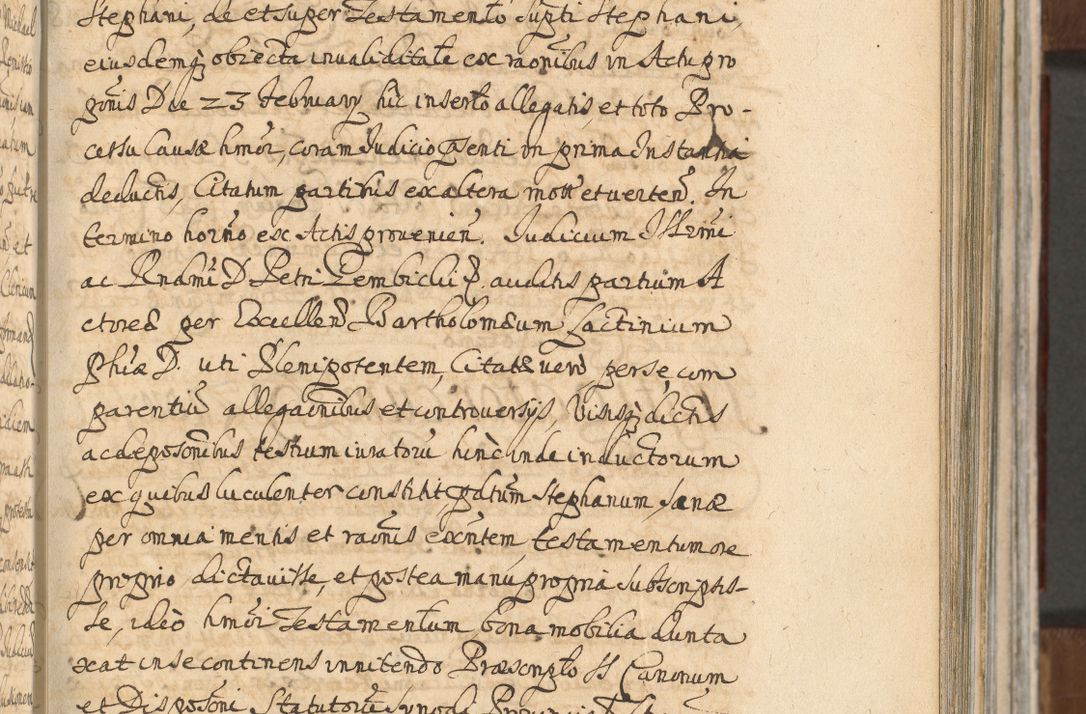 Stephani, de et super Testamento supti Stephani,
eiusdemq obiecta invaliditate ex raonibus in Actu pro
Die 23 February hic inserto allegatis, et toto Pro-
cessu Causæ hmoi, coram Judicio pnti in prima Instantia
deductis, Citatum partibus ex altera mott et verten. In
termino horno ex Actis provenien. Judicium Illrmi
ac Rndmi D Petri Gembicki p. auditis partium A
ctorea per Excellen D Bartholomæum Zactinium
Phiæ D. uti Plenipotentem, Citatæ vero per se, com
parentiu allegaonibus et controversijs, Visisq dictis
ac deposonibus testium iuratoru hinc inde inductorum
ex quibus luculenter constitit, pdtum Stephanum sanæ
per omnia mentis et raonis exntem, testamentum ore
proprio dictavisse, et postea manu propria subscripsis-
se, ideo hmoi Testamentum, bona mobilia dunta
xat in se continens innitendo Præscripto SS Canonum
et Disposoni Statutoru Synodi